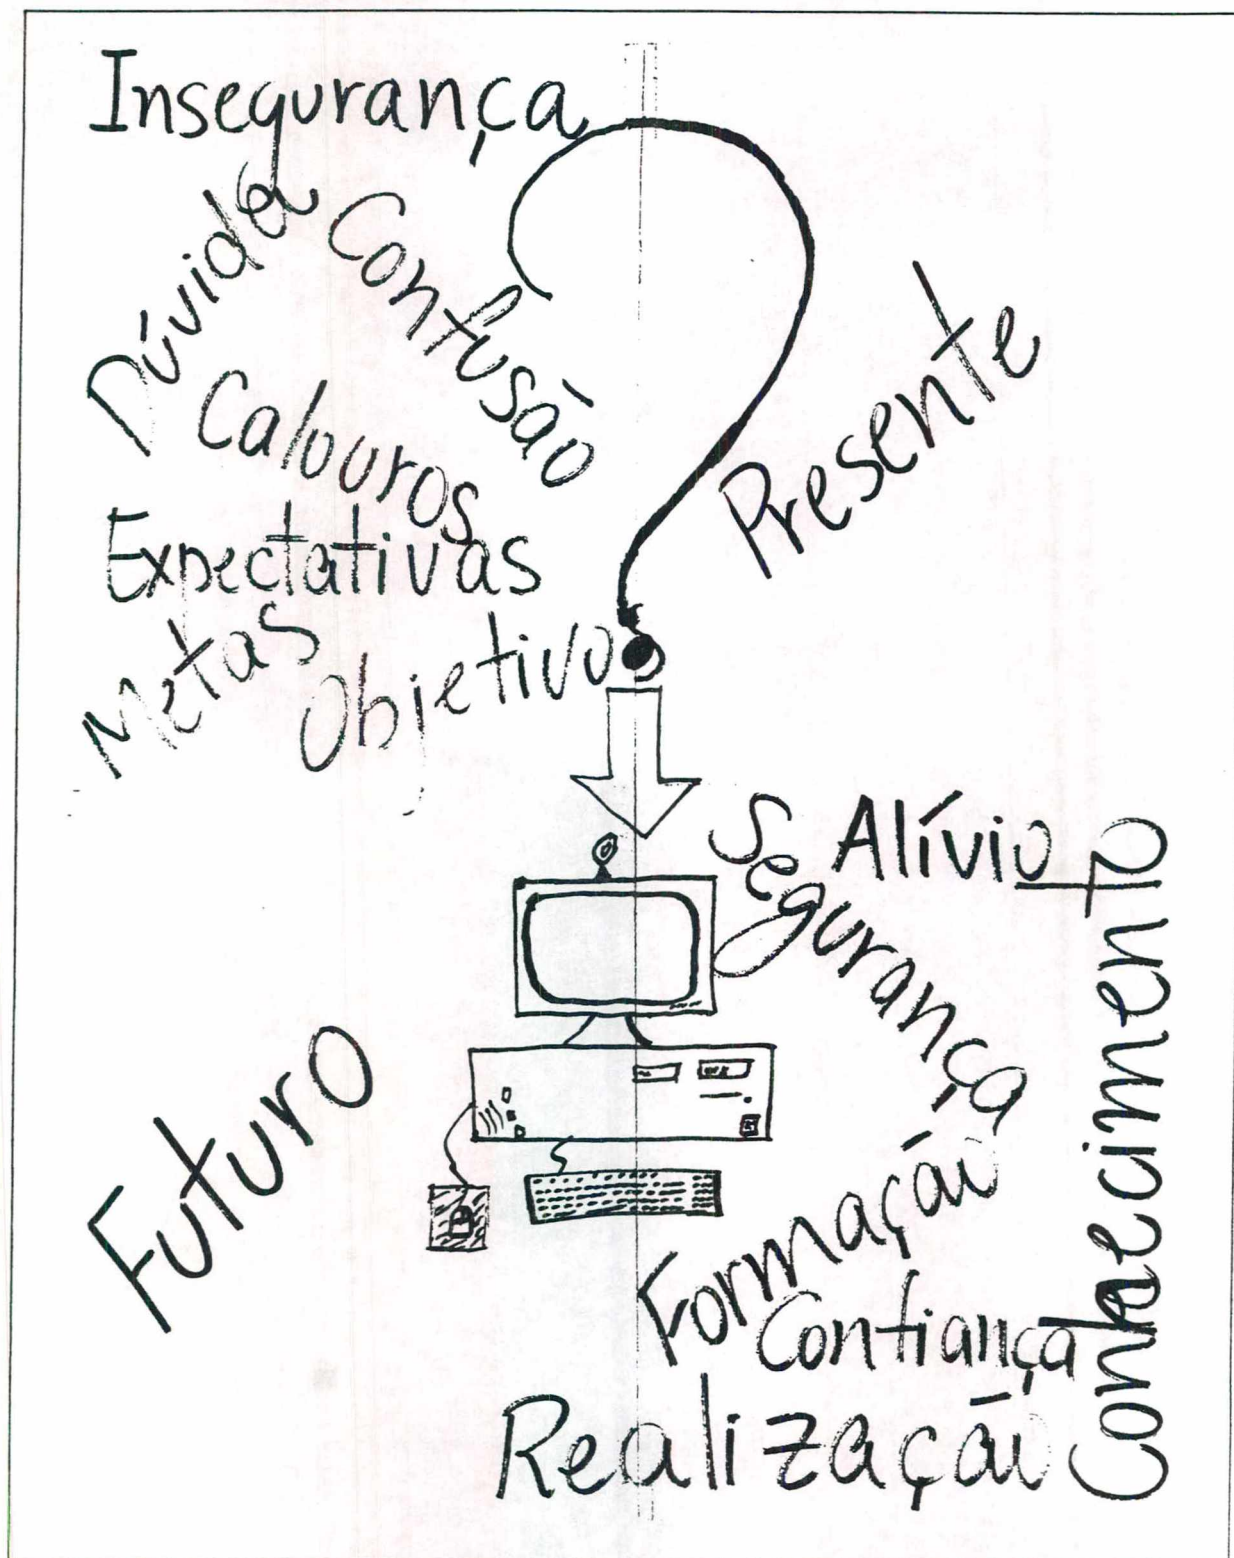 Insegurança
Dúvida
Confusão
Calouros
Presente
Expectativas
Metas
Objetivo
Alívio
Segurança
Conhecimento
Futuro
Formação
Confiança
Realização